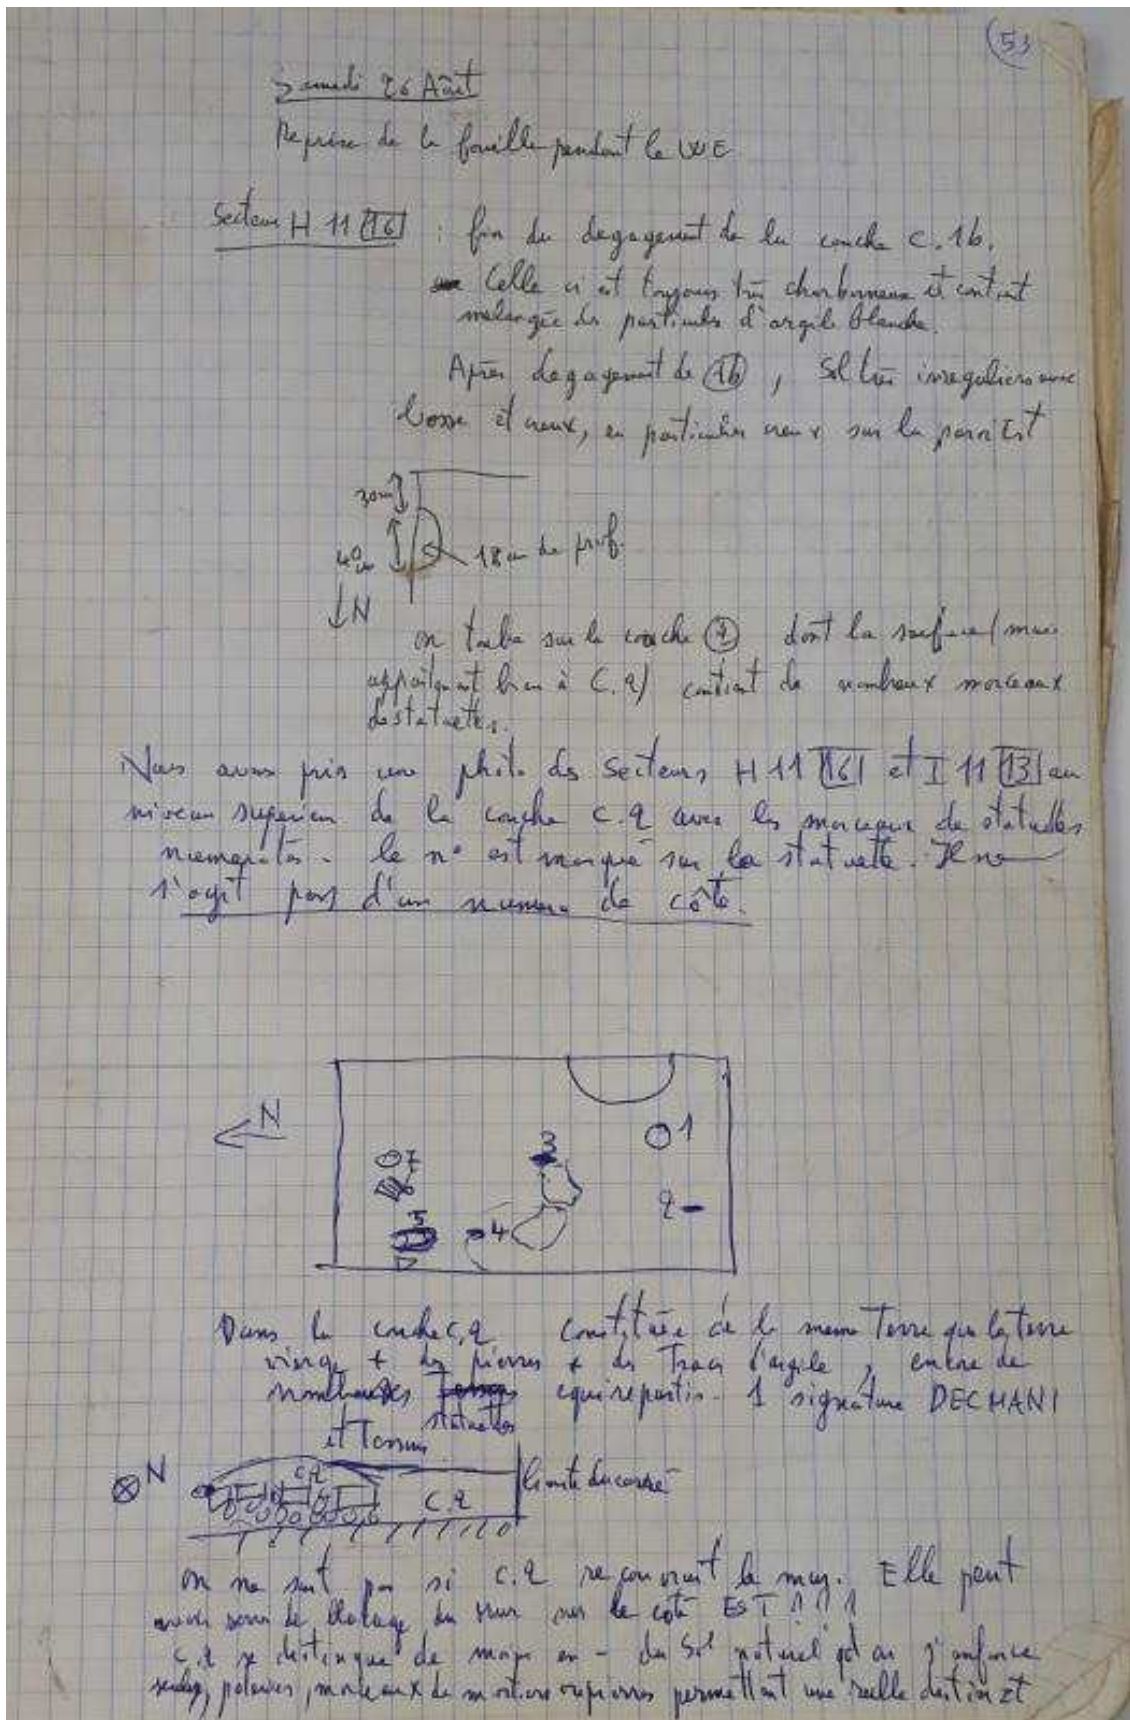 53
Samedi 26 Août
Reprise de la fouille pendant le WE
Secteur H 11 16 : fin du degagement de la couche C.1b.
Celle ci est toujours très charbonneuse et contient
melangée des particules d'argile blanche.
Après degagement de 1b, Sol très irregulier avec
bosse et creux, en particulier creux sur la paroi Est
30cm
40 cm
18 cm de prof.
N
on tombe sur la couche 2 dont la surface (mais
appartenant bien à C.2) contient de nombreux morceaux
de statuettes.
Nous avons pris une photo des Secteurs H 11 16 et I 11 13 au
niveau superieur de la couche C.2 avec les morceaux de statuettes
numerotés - le n° est marqué sur la statuette. Il ne
s'agit pas d'un numero de côte.
N
1
3
7
6
2
5
4
Dans la couche C.2 constituée de la meme Terre que la terre
vierge + des pierres + des Traces d'argile, encore de
nombreuses statuettes equireparties - 1 signature DECHANI
et Tessons
N
C.2
C.2
limite du carré
on ne sait pas si C.2 recouvrait le mur. Elle peut
avoir servi de blocage du mur sur le coté EST
C.2 se distingue de moins en - du Sol naturel qd on s'enfonce
seules, poteries, morceaux de mortiers ou pierres permettent une reelle